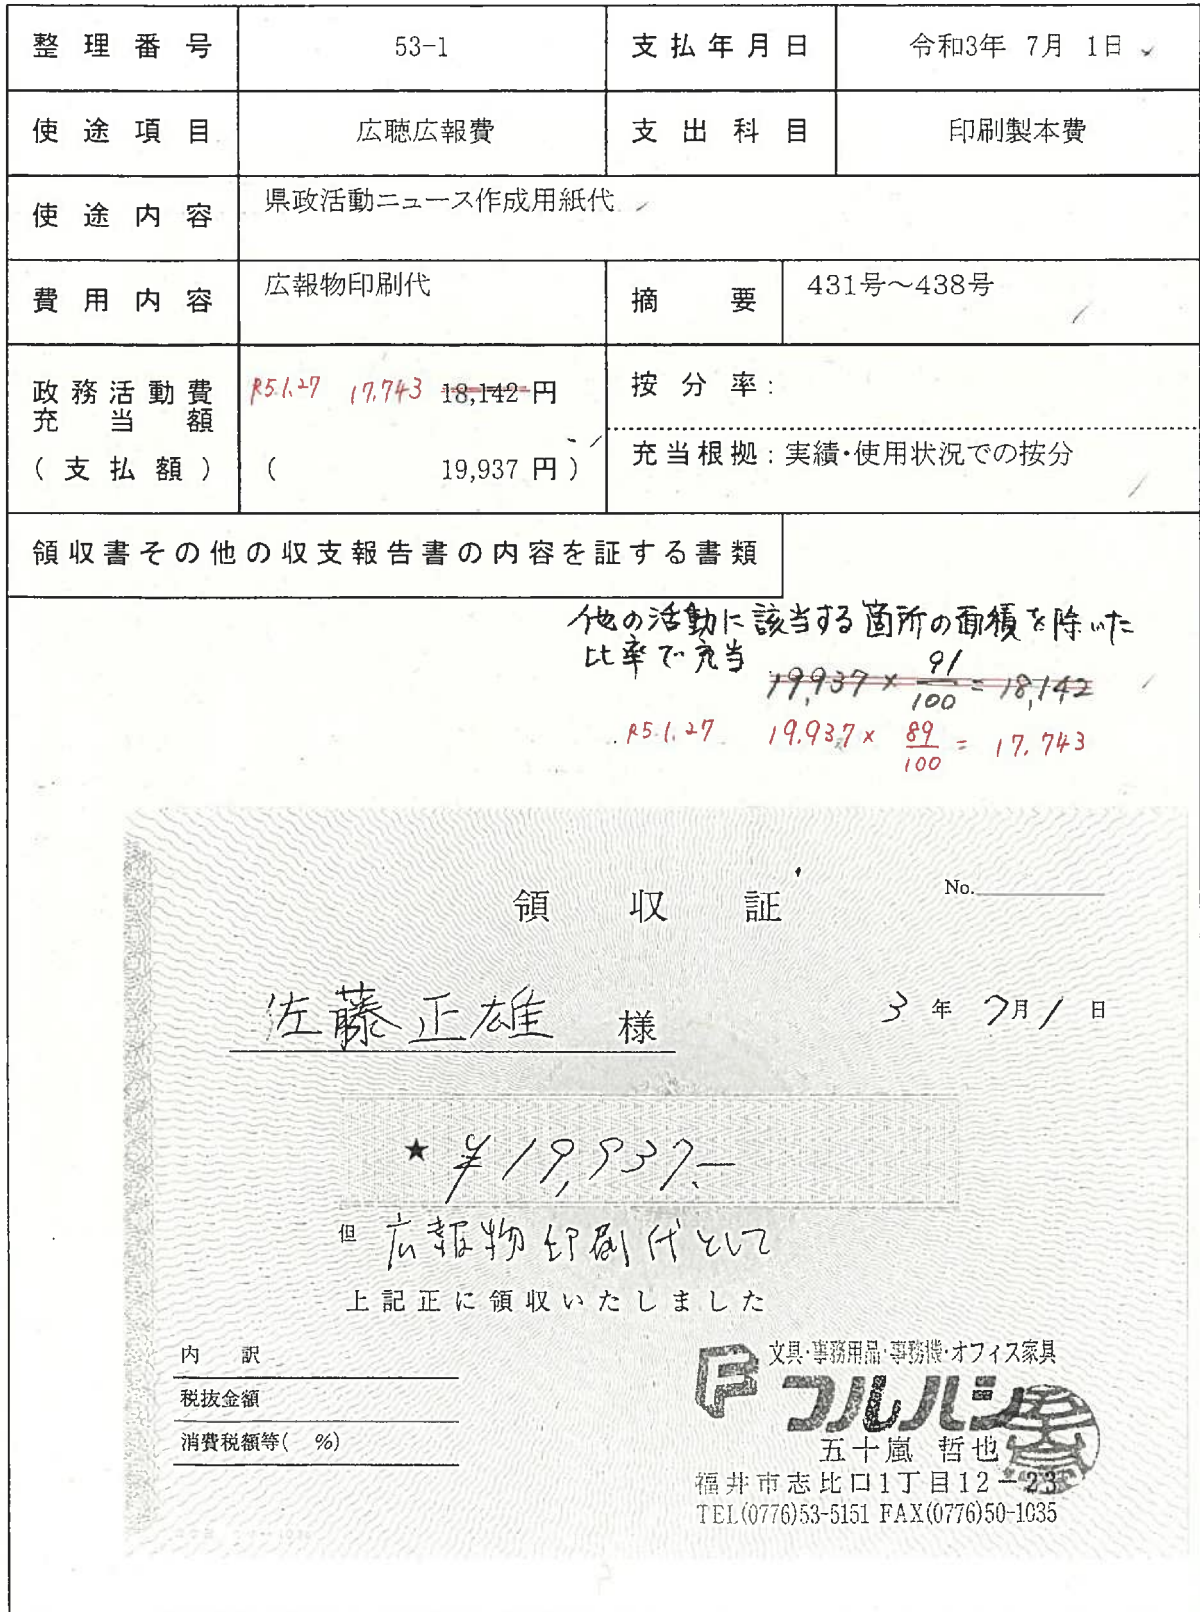 整理番号 53-1 支払年月日 令和3年 7月 1日
使途項目 広聴広報費 支出科目 印刷製本費
使途内容 県政活動ニュース作成用紙代
費用内容 広報物印刷代 摘要 431号～438号
政務活動費充当額 R5.1.27 17,743 18,142円 按分率：
（支払額） （ 19,937円） 充当根拠：実績・使用状況での按分
領収書その他の収支報告書の内容を証する書類
他の活動に該当する箇所の面積を除いた
比率で充当
19,937 × 91/100 = 18,142
R5.1.27 19,937 × 89/100 = 17,743
領収証 No.
佐藤正雄 様 3年 7月 1日
★ ¥19,937.—
但 広報物印刷代として
上記正に領収いたしました
内訳
税抜金額
消費税額等( %)
文具・事務用品・事務機・オフィス家具
フルハシ
五十嵐 哲也
福井市志比口1丁目12-23
TEL(0776)53-5151 FAX(0776)50-1035